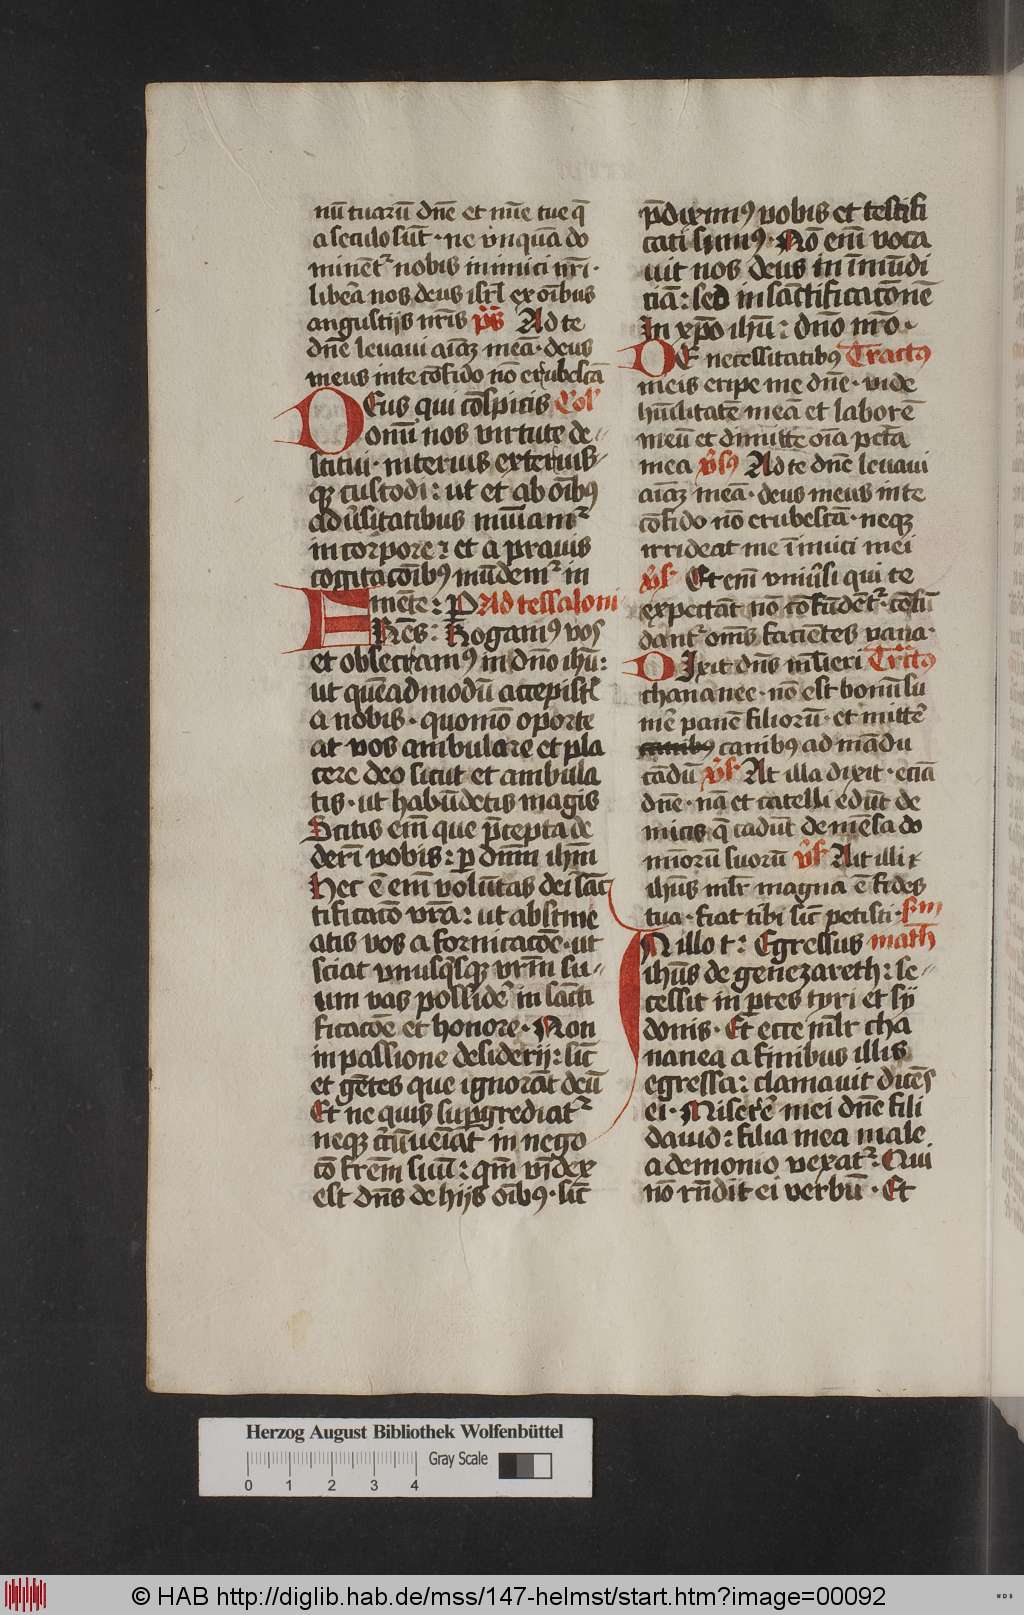 nū tuarū dn̄e et mīe tue q̄
a seculo sūt · ne vnquā do
minēt᷑ nobis inimici nr̄i ·
libea nos deus isrl̄ ex oībus
angustijs nr̄is p̄s Ad te
dn̄e leuaui aīaꝫ meā · deus
meus in te cōfido nō erubescā
Deus qui cōspicis Col'
omnī nos virtute de⸗
stitui · interius exterius⸗
qꝫ custodi : ut et ab oībꝰ
aduˀsitatibus muniam᷑
in corpore : et a prauis
cogitacōibꝰ mūdem᷑ in
mēte : P Ad tessaloni
FRēs : Rogamꝰ vos
et obsecramꝰ in dn̄o ihū :
ut quēadmodū accepistis
a nobis · quomō oporte
at vos ambulare et pla
cere deo sicut et ambula
tis · ut habūdetis magis
Scitis em̄ que p̄cepta de
derī vobis : ꝑ dnm̄ ihm̄
Hec ē em̄ volūtas dei sāc
tificacō vrā : ut abstine
atis vos a fornicacōe · ut
sciat vnusqͥsqꝫ vrm̄ su⸗
um vas possidēˀ in sācti
ficacōe et honore · Non
in passione desiderij : sic̄
et gētes que ignorāt deū
Et ne quis suꝑgrediat᷑
neqꝫ cͥcūueīat in nego
cō frēm suū : qm̄ vīdex
est dn̄s de hijs oībꝰ · sic̄
p̄diximꝰ vobis et testifi
cati sumꝰ · Nō em̄ voca
uit nos deus in īmūdi
ciā : sed in sāctificacōnē
In xp̄o ihū : dn̄o nr̄o ·
DE necessitatibꝰ Tractꝰ
meis eripe me dn̄e · vide
hūilitatē meā et laborē
meū et dimitte oīa pctā
mea v̉sꝰ Ad te dn̄e leuaui
aīaꝫ meā · deus meus in te
cōfido nō erubescā · neqꝫ
irrideāt me īimici mei
v̉s · Et em̄ vniuˀsi qui te
expectāt nō cōfūdēt᷑ · cōfū
dant᷑ om̄s faciētes vana ·
Dixit dn̄s ml̄ieri Trāctꝰ
chananee · nō est bonū su
mēˀ panē filiorū · et mittēˀ
canibꝰ canibꝰ ad mādu
cādū v̉s · At illa dixit · eciā
dn̄e · nā et catelli edūt de
micis q̄ cadūt de mēsa do
minorū suorū v̉s · Ait illi
ihūs ml̄r magna ē fides
tua · fiat tibi sic̄ petisti · Sm̄
IN illo t : Egressus math̄
ihūs de genezareth : se⸗
cessit in ꝑtes tyri et sy
donis · Et ecce ml̄r cha
nanea a finibus illis
egressa : clamauit dicēs
ei · Miserēˀ mei dn̄e fili
dauid : filia mea male
a demonio vexat᷑ : Qui
nō rn̄dit ei verbū · Et
Herzog August Bibliothek Wolfenbüttel
Gray Scale
0 1 2 3 4
© HAB http://diglib.hab.de/mss/147-helmst/start.htm?image=00092